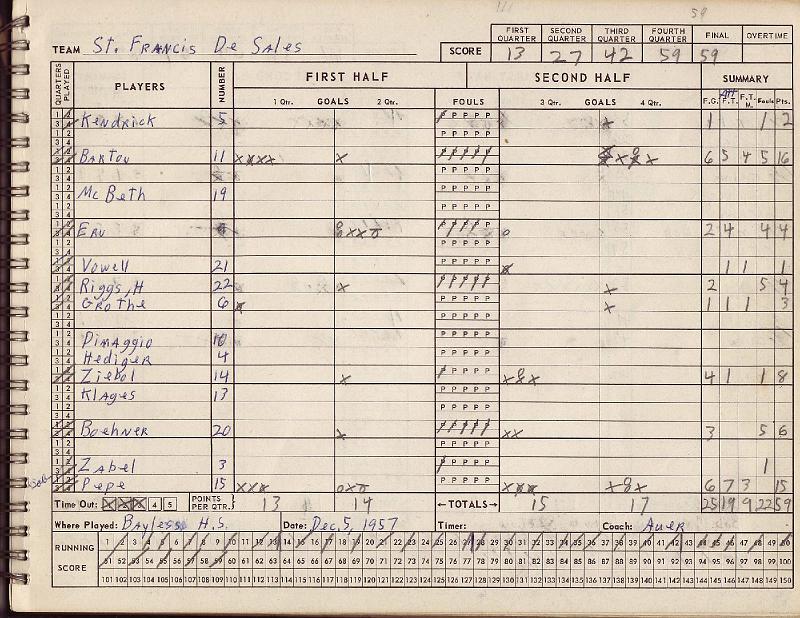 59
FIRST QUARTER SECOND QUARTER THIRD QUARTER FOURTH QUARTER FINAL OVERTIME
TEAM St. Francis De Sales SCORE 13 27 42 59 59
QUARTERS PLAYED PLAYERS NUMBER FIRST HALF SECOND HALF SUMMARY
1 Qtr. GOALS 2 Qtr. FOULS 3 Qtr. GOALS 4 Qtr. F.G. Att F.T. F.T. M. Fouls Pts.
Kendrick 5 x 1 1 2
Barton 11 6 5 4 5 16
McBeth 19
Erv 2 4 4 4
Vowell 21 1 1 1
Riggs, H 22 x x 2 5 4
Grothe 6 x 1 1 1 3
Dimaggio 10
Hediger 4
Ziebol 14 x 4 1 1 8
Klages 13
Boehner 20 x xx 3 5 6
Zabel 3 1
Pepe 15 6 7 3 15
Time Out: 4 5 POINTS PER QTR. 13 14 ←TOTALS→ 15 17 25 19 9 22 59
Where Played: Bayless H.S. Date: Dec, 5, 1957 Timer: Coach: Auer
RUNNING SCORE
1 2 3 4 5 6 7 8 9 10 11 12 13 14 15 16 17 18 19 20 21 22 23 24 25 26 27 28 29 30 31 32 33 34 35 36 37 38 39 40 41 42 43 44 45 46 47 48 49 50
51 52 53 54 55 56 57 58 59 60 61 62 63 64 65 66 67 68 69 70 71 72 73 74 75 76 77 78 79 80 81 82 83 84 85 86 87 88 89 90 91 92 93 94 95 96 97 98 99 100
101 102 103 104 105 106 107 108 109 110 111 112 113 114 115 116 117 118 119 120 121 122 123 124 125 126 127 128 129 130 131 132 133 134 135 136 137 138 139 140 141 142 143 144 145 146 147 148 149 150